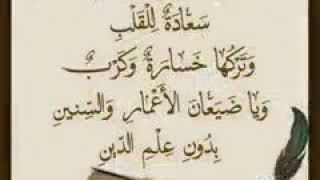 سَعَادَةٌ لِلْقَلْبِ
وَتَرْكُهَا خَسَارَةٌ وَكَرْبٌ
وَيَا ضَيَعَانَ الأَعْمَارِ وَالسِّنِينِ
بِدُونِ عِلْمِ الدِّينِ